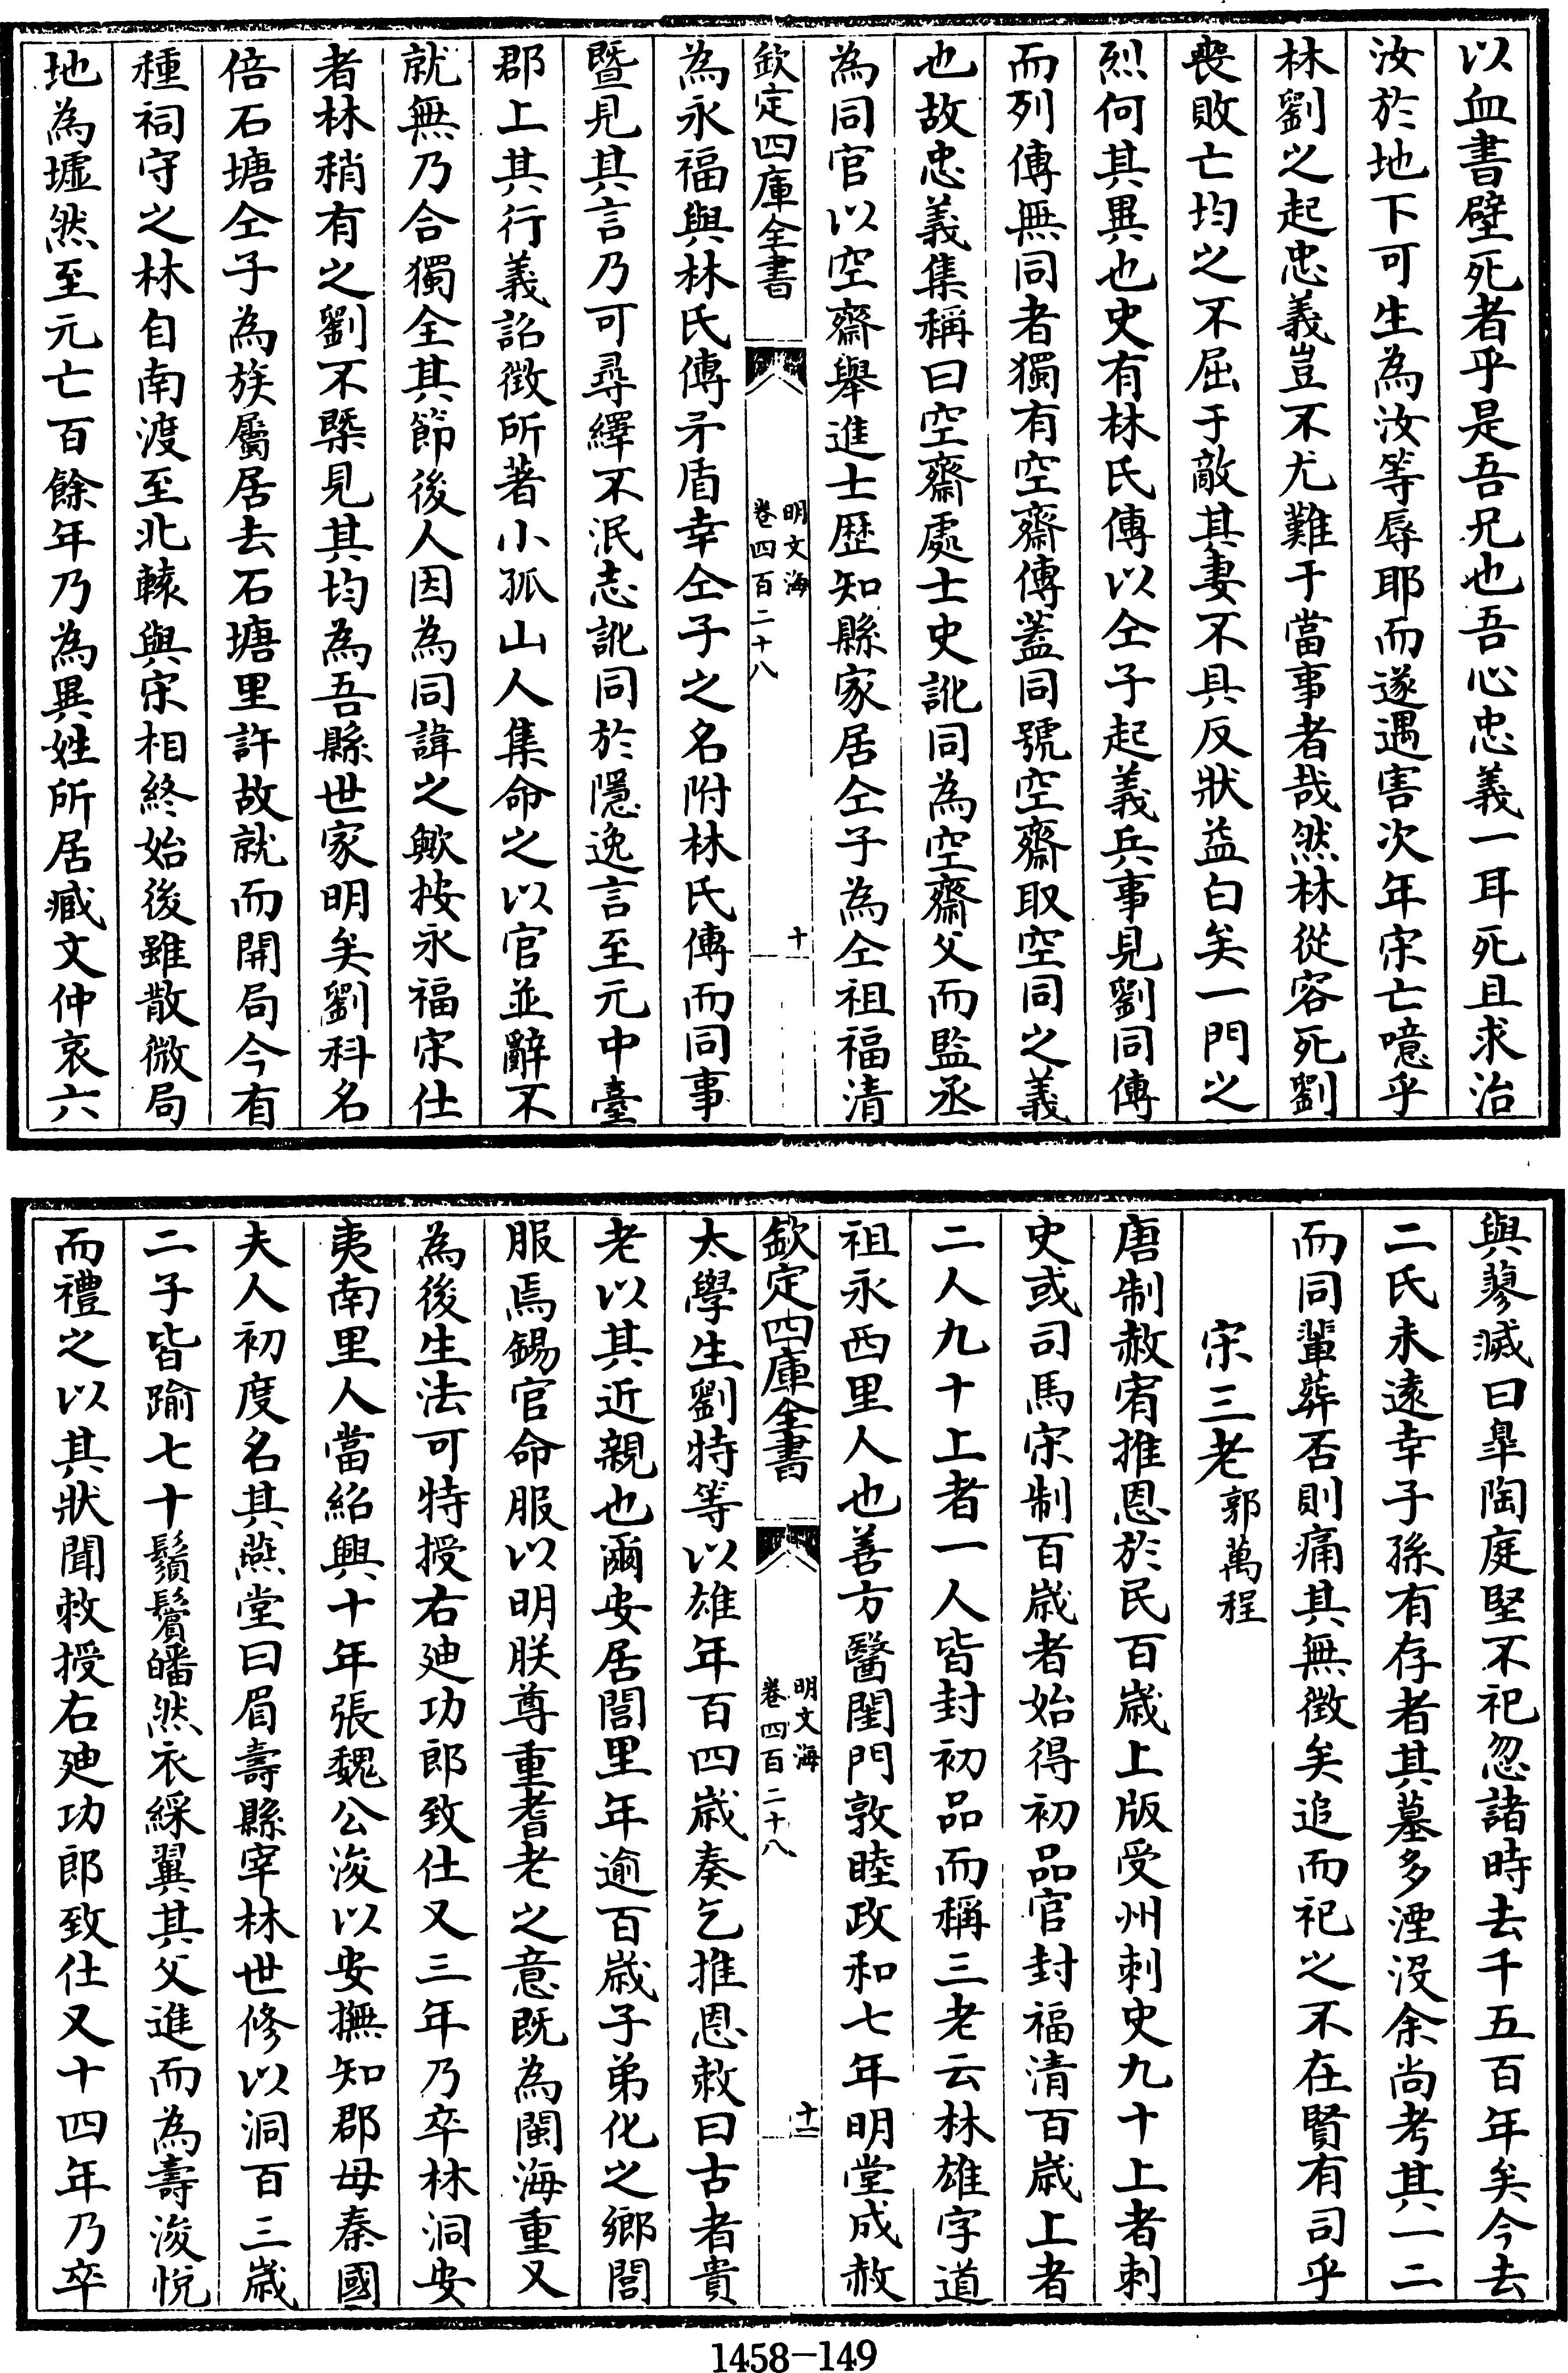 以血書壁死者乎是吾兄也吾心忠義一耳死且求治
汝於地下可生為汝等辱耶而遂遇害次年宋亡噫乎
林劉之起忠義豈不尤難于當事者哉然林從容死劉
喪敗亡均之不屈于敵其妻不具反狀益白矣一門之
烈何其異也史有林氏傳以仝子起義兵事見劉同傳
而列傳無同者獨有空齋傳蓋同號空齋取空同之義
也故忠義集稱曰空齋處士史訛同為空齋父而監丞
為同官以空齋舉進士歷知縣家居仝子為仝祖福清
欽定四庫全書
明文海
卷四百二十八
十
為永福與林氏傳矛盾幸仝子之名附林氏傳而同事
暨見其言乃可尋繹不泯志訛同於隱逸言至元中臺
郡上其行義詔徵所著小孤山人集命之以官並辭不
就無乃合獨全其節後人因為同諱之歟按永福宋仕
者林稍有之劉不槩見其均為吾縣世家明矣劉科名
倍石塘仝子為族屬居去石塘里許故就而開局今有
種祠守之林自南渡至北轅與宋相終始後雖散微局
地為墟然至元亡百餘年乃為異姓所居臧文仲哀六
與蓼滅曰臯陶庭堅不祀忽諸時去千五百年矣今去
二氏未遠幸子孫有存者其墓多湮沒余尚考其一二
而同輩葬否則痛其無徵矣追而祀之不在賢有司乎
宋三老郭萬程
唐制赦宥推恩於民百歲上版受州刺史九十上者刺
史或司馬宋制百歲者始得初品官封福清百歲上者
二人九十上者一人皆封初品而稱三老云林雄字道
祖永西里人也善方醫闔門敦睦政和七年明堂成赦
欽定四庫全書
明文海
卷四百二十八
十一
太學生劉特等以雄年百四歲奏乞推恩敕曰古者貴
老以其近親也爾安居閭里年逾百歲子弟化之鄉閭
服焉錫官命服以明朕尊重耆老之意既為閩海重又
為後生法可特授右廸功郎致仕又三年乃卒林洞安
夷南里人當紹興十年張魏公浚以安撫知郡母秦國
夫人初度名其燕堂曰眉壽縣宰林世修以洞百三歲
二子皆踰七十鬚鬢皤然衣綵翼其父進而為壽浚悅
而禮之以其狀聞敕授右廸功郎致仕又十四年乃卒
1458-149